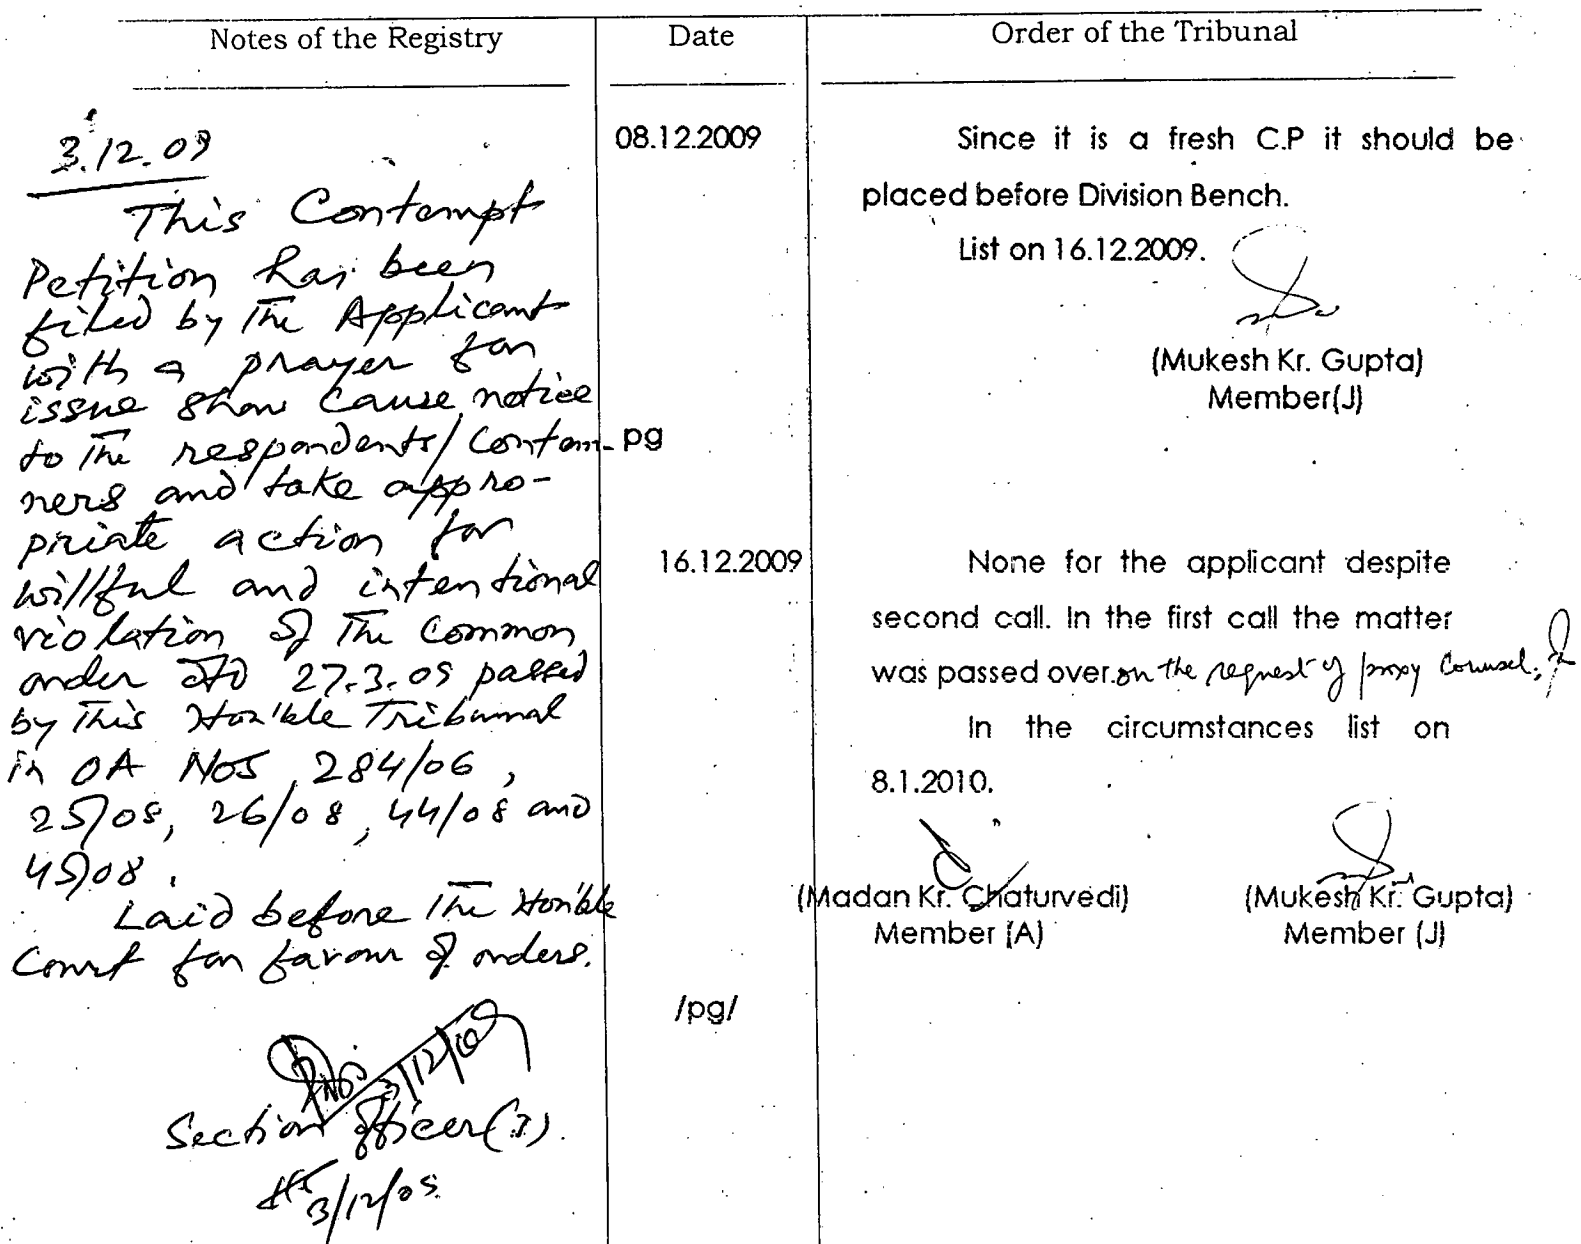 Notes of the Registry
Date
Order of the Tribunal
3.12.09
This Contempt
Petition has been
filed by the Applicant
with a prayer for
issue show cause notice
to the respondents/Contem-
ners and take appro-
priate action for
willful and intentional
violation of the Common
order dtd 27.3.09 passed
by this Hon'ble Tribunal
in OA Nos 284/06,
25/08, 26/08, 44/08 and
45/08.
Laid before the Hon'ble
Court for favour of orders.
3/12/09
Section Officer(J).
3/12/09
08.12.2009
Since it is a fresh C.P it should be
placed before Division Bench.
List on 16.12.2009.
(Mukesh Kr. Gupta)
Member(J)
pg
16.12.2009
None for the applicant despite
second call. In the first call the matter
was passed over on the request of proxy Counsel.
In the circumstances list on
8.1.2010.
(Madan Kr. Chaturvedi) (Mukesh Kr. Gupta)
Member (A) Member (J)
/pg/